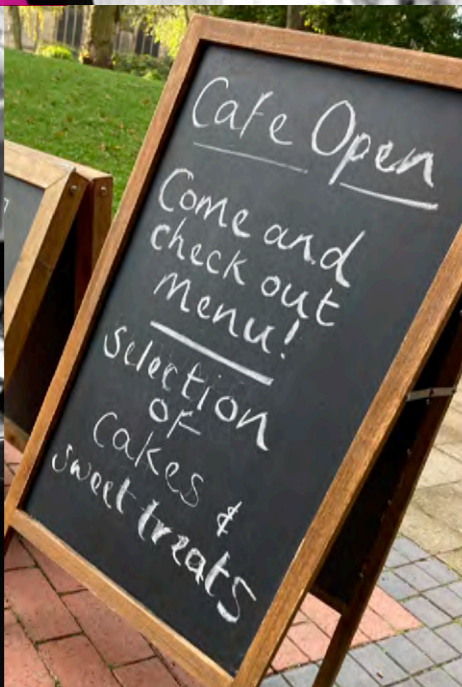 Cafe Open
Come and
check out
menu!
Selection
of
cakes &
sweet treats